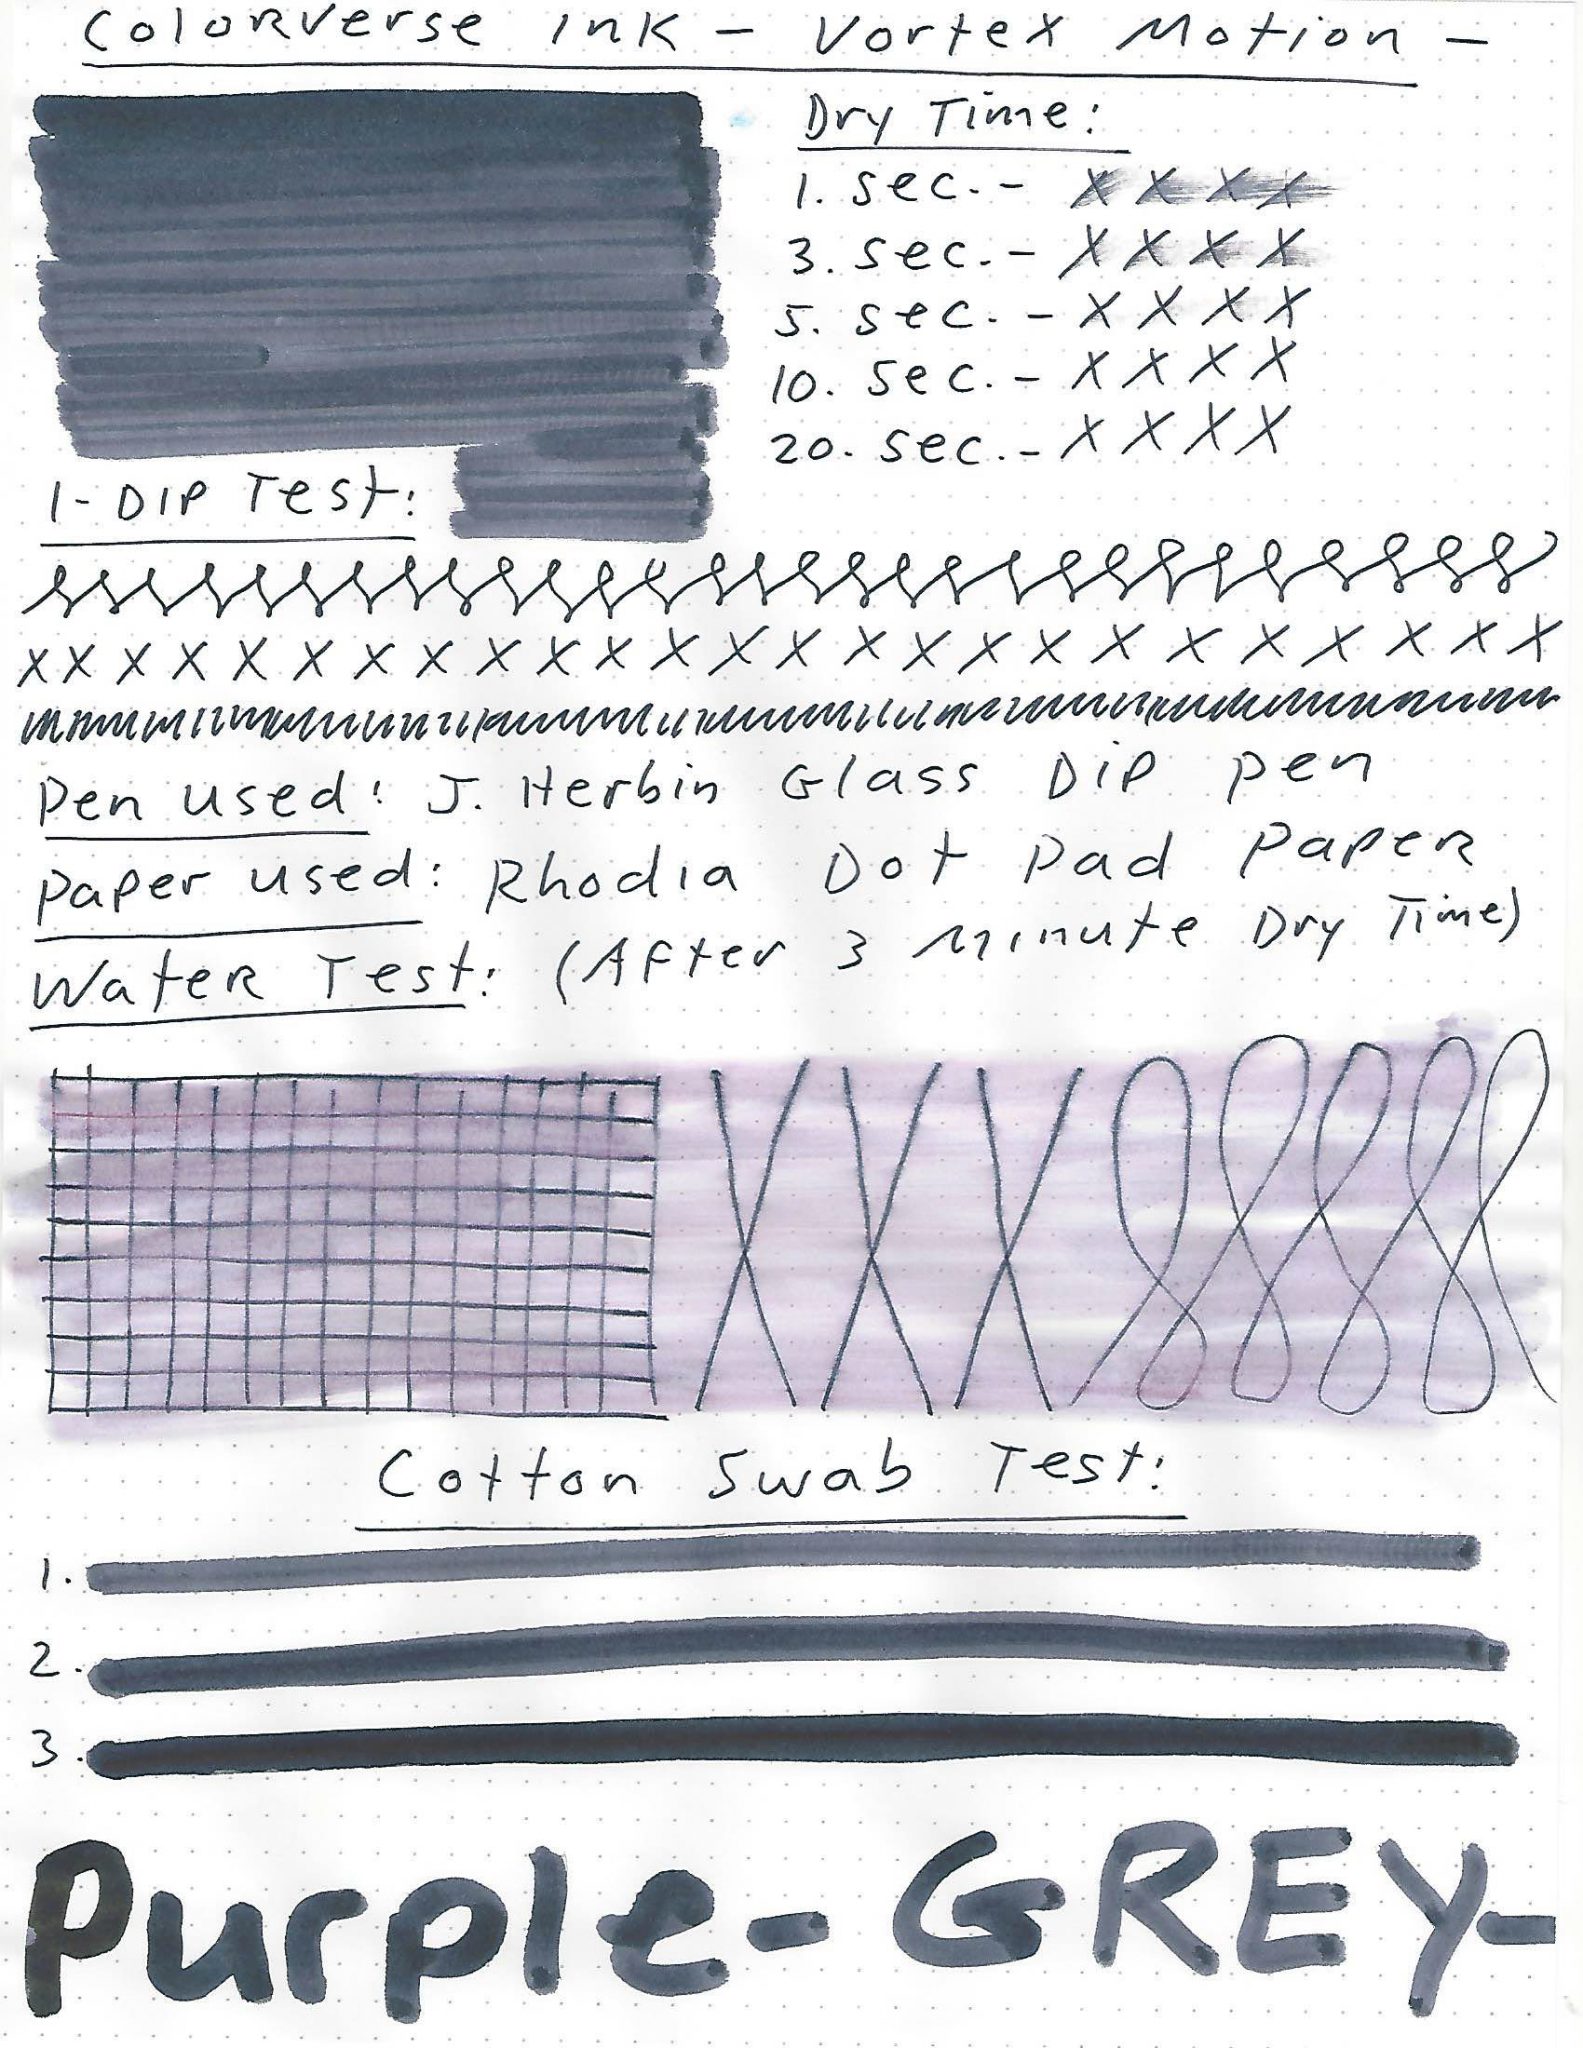 Colorverse Ink - Vortex Motion -
Dry Time:
1. sec. - X X X X
3. sec. - X X X X
5. sec. - X X X X
10. sec. - X X X X
20. sec. - X X X X
1-DIP Test:
X X X X X X X X X X X X X X X X X X X X X X X X X X
Pen used: J. Herbin Glass Dip pen
Paper used: Rhodia Dot Pad Paper
Water Test: (After 3 minute Dry Time)
X X X
Cotton Swab Test:
1.
2.
3.
Purple-GREY-